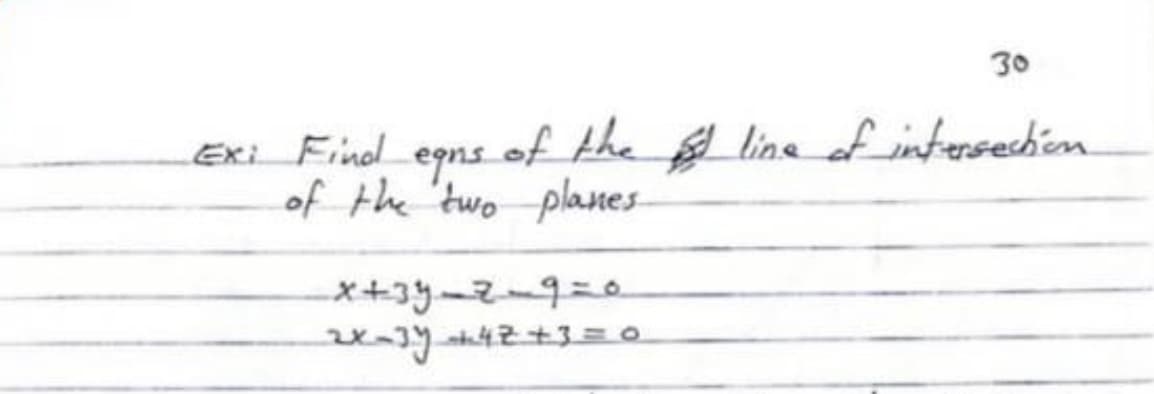 30
Ex: Find eqns of the line of intersection
of the two planes
x+3y-z-9=0
2x-3y+4z+3=0